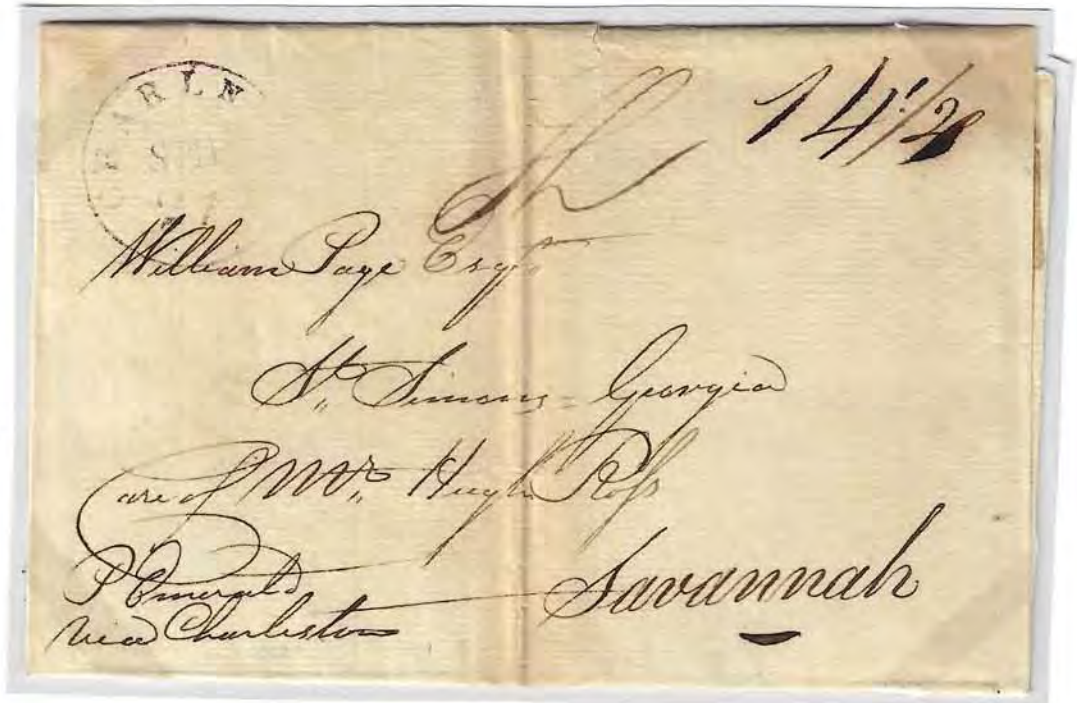 CHARLN
14 1/2
Sh
William Page Esqr
St. Simons - Georgia
Care of Mr. Hugh Ross
Savannah
P Emerald
via Charleston